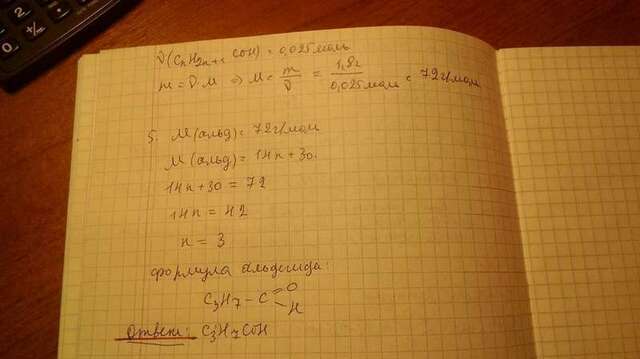 ν(CₙH₂ₙ₊₁ COH) = 0,025 моль
m = ν M ⇒ M = m/ν = 1,8г/0,025 моль = 72 г/моль
5. M(альд) = 72 г/моль
M(альд) = 14n + 30.
14n + 30 = 72
14n = 42
n = 3
формула альдегида:
C₃H₇ – C =O –H
Ответ: C₃H₇COH